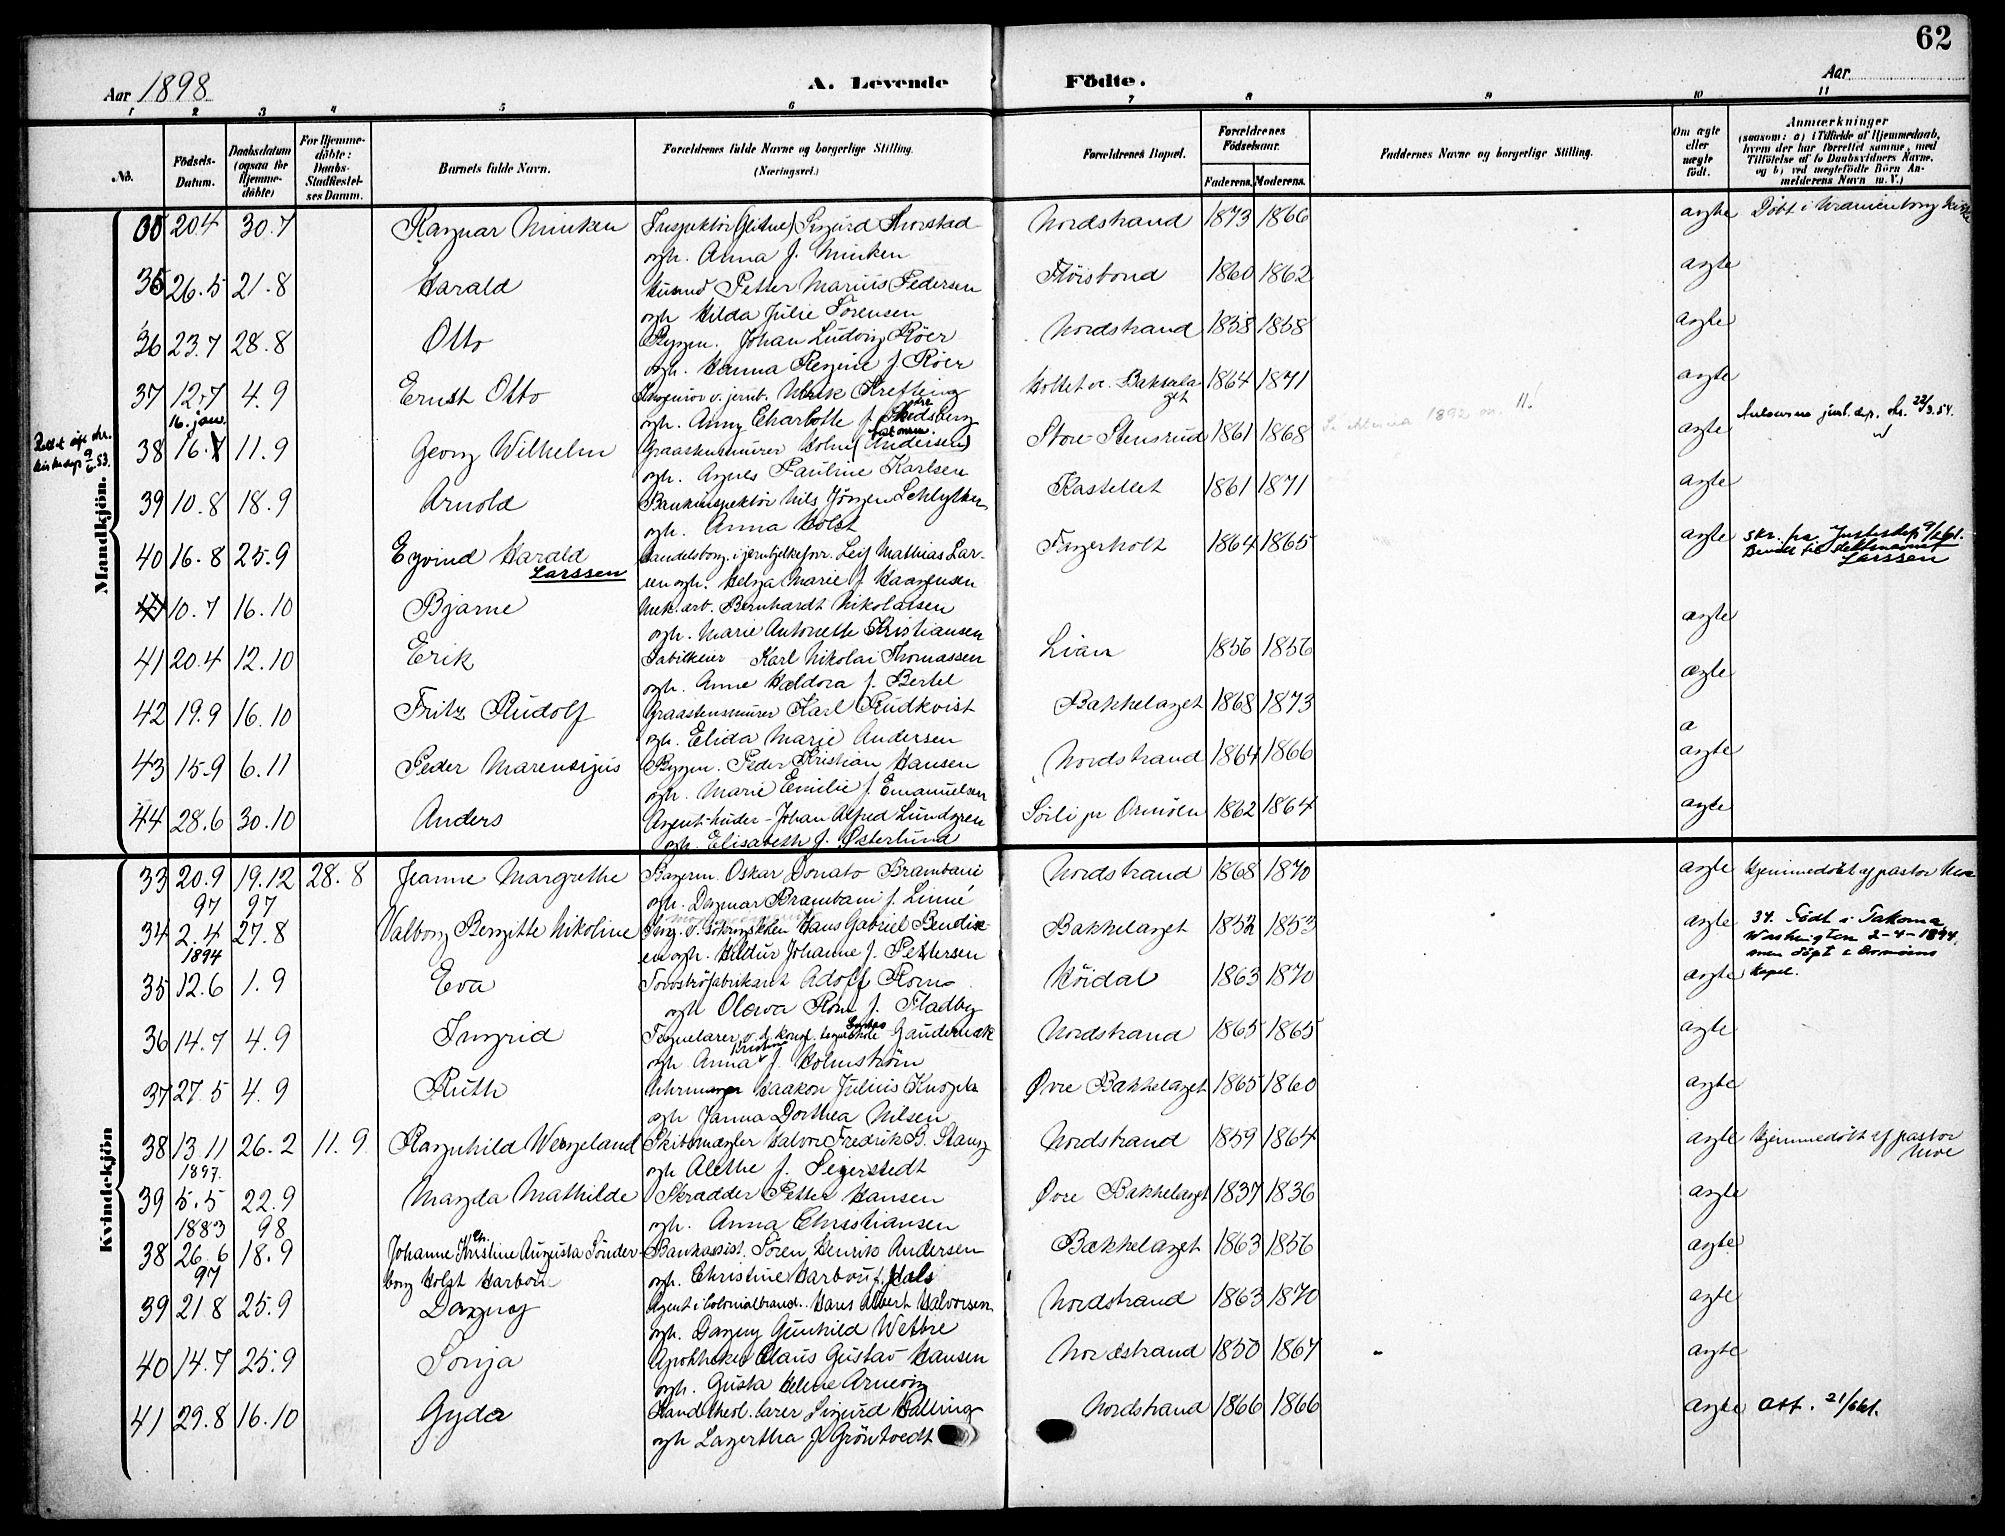 62
Aar 1898
A. Levende Födte.
Aar
1 2 3 4 5 6 7 8 9 10 11
No.
Födsels-Datum.
Daabsdatum (ogsaa for Hjemmedöbte)
For Hjemmedöbte: Daabs-Stadfæstelses Datum.
Barnets fulde Navn.
Forældrenes fulde Navne og borgerlige Stilling. (Næringsvei.)
Forældrenes Bopæl.
Forældrenes Födselsaar.
Faderens. Moderens.
Faddernes Navne og borgerlige Stilling.
Om ægte eller uægte födt.
Anmærkninger (saasom: a) i Tilfælde af Hjemmedaab, hvem der har forrettet samme, med Tilföielse af to Daabsvidners Navne, og b) ved uægtefödte Börn Anmelderens Navn m. V.)
Mandkjön.
20.4 30.7 Ragnar Minken Inspektör (Glitne) Sigurd Thorstad Nordstrand 1873 1866 ægte Döbt i Uranienborg Kirke
ogh. Anna f. Minken
35 26.5 21.8 Harald Husmd Petter Marius Pedersen Flöisbond 1860 1862 ægte
ogh Hilda Julie Sörensen
36 23.7 28.8 Otto Bygm. Johan Ludvig Röer Nordstrand 1858 1858 ægte
ogh. Hanna Regine f. Röer
37 12.7 4.9 Ernst Otto Ingeniör v. jernb. Ulrik Krefting 1864 1871 ægte
ogh. Anny Charlotte f.
16. jan.
38 16. 11.9 Georg Wilhelm Graastensmurer Holm (Andersen) Store-Stensrud 1861 1868 ægte
ogh. Agnes Pauline Karlsen
39 10.8 18.9 Arnold Bankinspektör Nils Jörgen Schlytter Kastellet 1861 1871 ægte
ogh. Anna Holst
40 16.8 25.9 Eyvind Harald Larssen Handelsborg. Leif Mathias Larsen Fagerholt 1864 1865 ægte
ogh. Helga Marie f. Haagensen
Larssen
10.7 16.10 Bjarne Mek. arb. Bernhardt Nikolaisen ægte
ogh. Marie Antonette Kristiansen
41 20.4 12.10 Erik Karl Nikolai Thomassen Lian 1856 1856 ægte
ogh. Anne Haldora f. Bertel
42 19.9 16.10 Fritz Rudolf Graastensmurer Karl Rudkvist Bakkelaget 1868 1873 a
ogh. Elida Marie Andersen
43 15.9 6.11 Peder Marensius Bygm. Peder Kristian Hansen Nordstrand 1864 1866 ægte
ogh. Marie Emilie f. Emanuelsen
44 28.6 30.10 Anders Agent-huder-Johan Alfred Lundgren Sörli pr Ormöen 1862 1864 ægte
ogh. Elisabeth f. Österlund
Kvindekjön
33 20.9 97 19.12 97 28.8 Jeanne Margrethe Oskar Donato Brambani Nordstrand 1868 1870 ægte Hjemmedöbt af pastor
ogh. Dagmar Brambani f. Linné
34 2.4 1894 27.8 Valborg Bergitte Nikoline Hans Gabriel Bendixen Bakkelaget 1852 1853 ægte 34. Födt i Takoma Washington 2-4-1894, men döpt i Ormöens kapel.
ogh. Hildur Johanne f. Pettersen
35 12.6 1.9 Eva Torvströfabrikant Adolf Rom Höidal 1863 1870 ægte
ogh Olava Rom f. Fladby
36 14.7 4.9 Ingrid Gaudernak Nordstrand 1865 1865 ægte
ogh. Anna Kristine f. Holmström
37 27.5 4.9 Ruth Uhrmager Haakon Julius Övre Bakkelaget 1865 1860 ægte
ogh Janna Dorthea Nilsen
38 13.11 1897. 26.2 11.9 Ragnhild Wergeland Skibsmægler Halvor Fredrik B. Stang Nordstrand 1859 1864 ægte Hjemmedöbt af pastor
ogh Alethe f. Segerstedt
39 5.5 1883 22.9 98 Magda Mathilde Skrædder Petter Hansen Övre Bakkelaget 1837 1836 ægte
ogh. Anna Christiansen
38 26.6 97 18.9 Johanne Kristine Augusta Sönderborg Holst Harbou Bankassist. Sören Henrik Andersen Bakkelaget 1863 1856 ægte
ogh. Christine Harbou f. Hals
39 21.8 25.9 Dagny Agent i Colonialbrand. Hans Albert Halvorsen Nordstrand 1863 1870 ægte
ogh. Dagny Gunhild Wettre
40 14.7 25.9 Sonja Apotheker Claus Gustav Hansen Nordstrand 1850 1867 ægte
ogh. Gusta Helene Arneving
41 29.8 16.10 Gyda Kand theol. lærer Sigurd Halling Nordstrand 1866 1866 ægte att. 21/6 61.
ogh Lagertha f. Gröntvedt